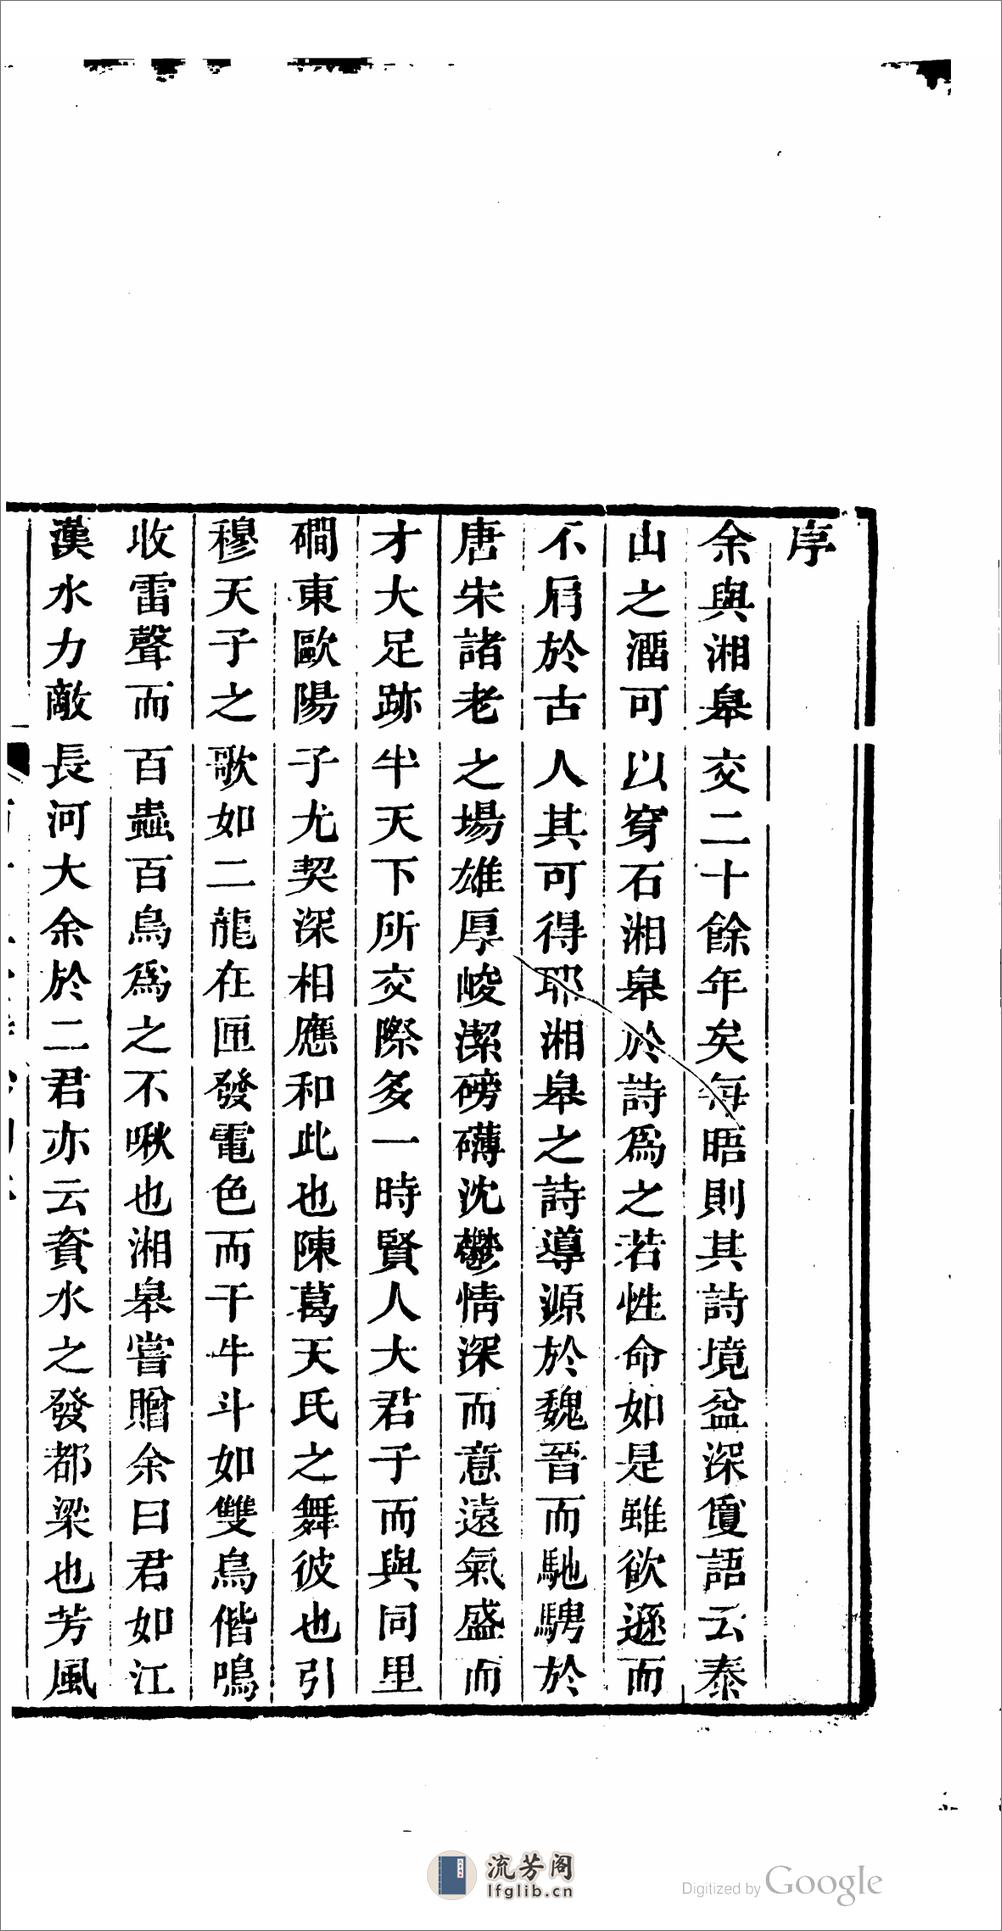 序
余與湘皋交二十餘年矣每晤則其詩境益深夐語云泰
山之霤可以穿石湘皋於詩爲之若性命如是雖欲遜而
不屑於古人其可得耶湘皋之詩導源於魏晉而馳騁於
唐宋諸老之場雄厚峻潔磅礴沈鬱情深而意遠氣盛而
才大足跡半天下所交際多一時賢人大君子而與同里
磵東歐陽子尤契深相應和此也陳葛天氏之舞彼也引
穆天子之歌如二龍在匣發電色而干牛斗如雙鳥偕鳴
收雷聲而百蟲百鳥爲之不啾也湘皋嘗贈余曰君如江
漢水力敵長河大余於二君亦云資水之發都梁也芳風
流芳阁
lfglib.cn
Digitized by Google